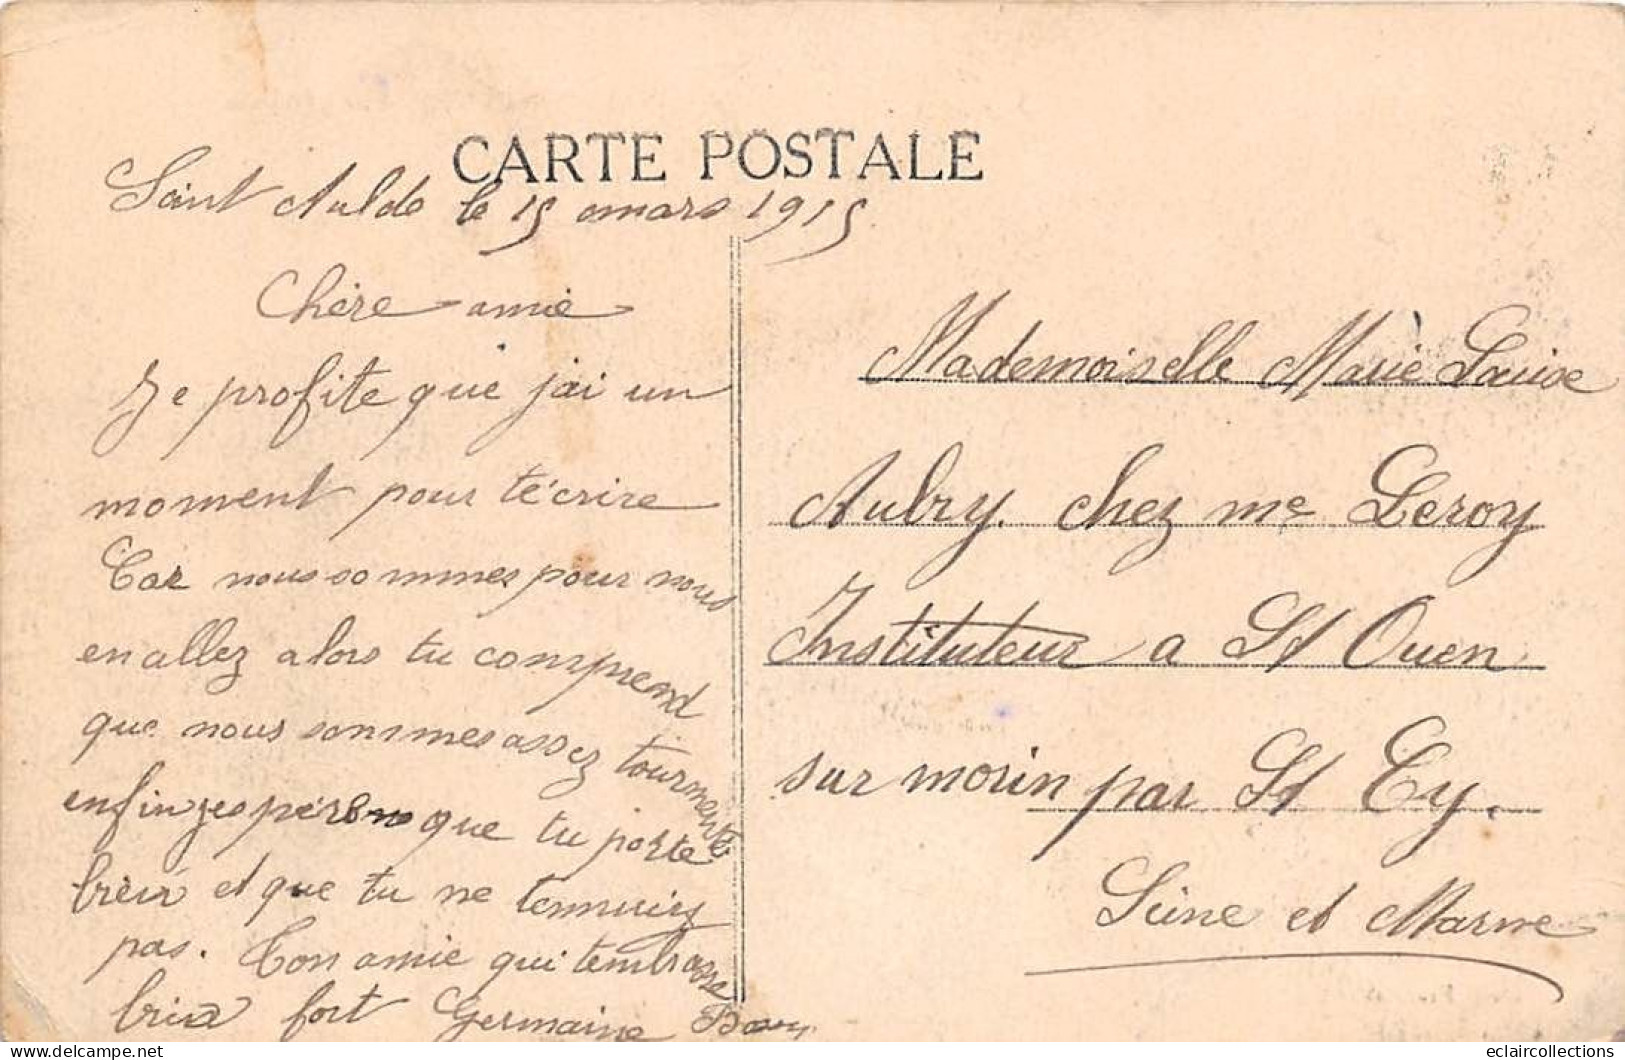 CARTE POSTALE
Saint Aulde le 15 mars 1915
Chère amie
Je profite que j'ai un
moment pour técrire
Car nous sommes pour nous
en allez alors tu comprend
que nous sommes assez tourmenté
enfin jespére que tu porte
bien et que tu ne tennuiz
pas. Ton amie qui tembrasse
bien fort Germaine
Mademoiselle Marie Louise
Aubry. chez me Leroy
Instituteur a St Ouen
sur morin par St Cy.
Seine et Marne
eclaircollections